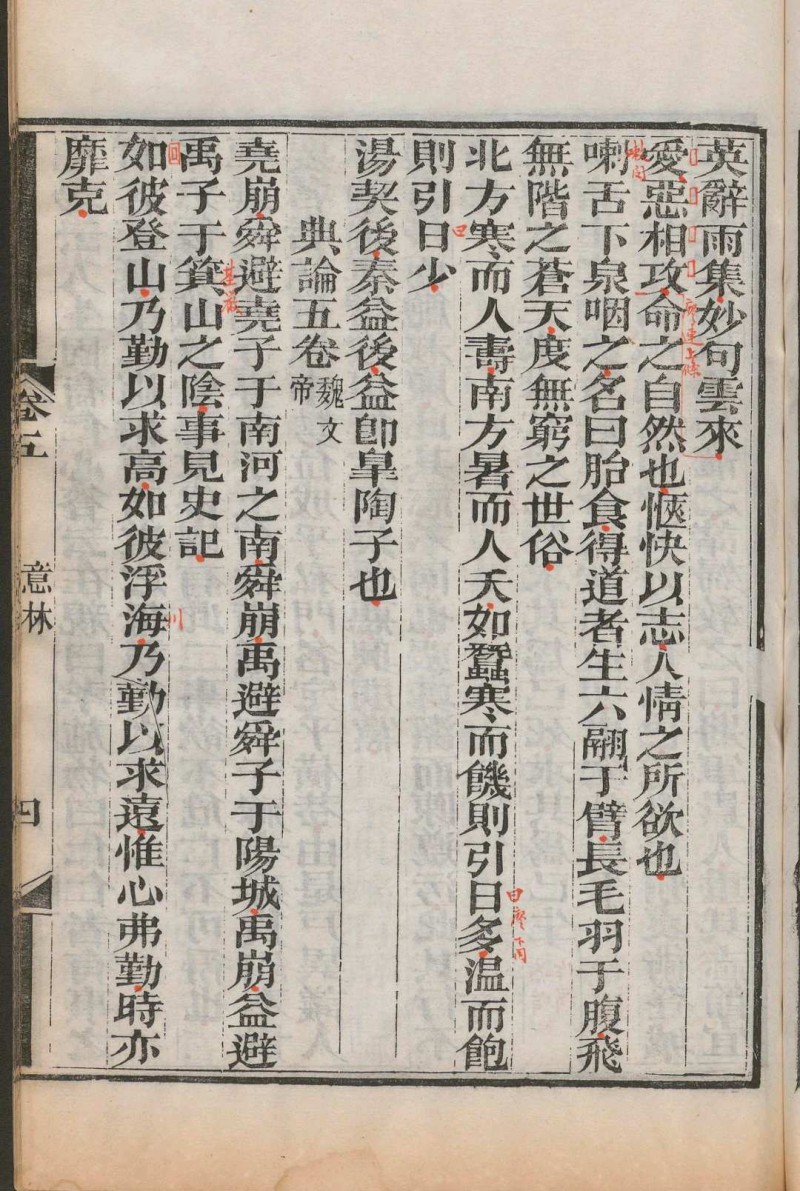 英辭雨集妙句雲來
愛惡相攻命之自然也愜快以志人情之所欲也
喇舌下泉咽之名曰胎食得道者生六翮于臂長毛羽于腹飛
無階之蒼天度無窮之世俗
北方寒而人壽南方暑而人夭如蠶寒而饑則引日多温而飽
則引日少
湯契後秦益後益卽臯陶子也
典論五卷魏文帝
堯崩舜避堯子于南河之南舜崩禹避舜子于陽城禹崩益避
禹子于箕山之陰事見史記
如彼登山乃勤以求高如彼浮海乃勤以求遠惟心弗勤時亦
靡克
卷五
意林
四